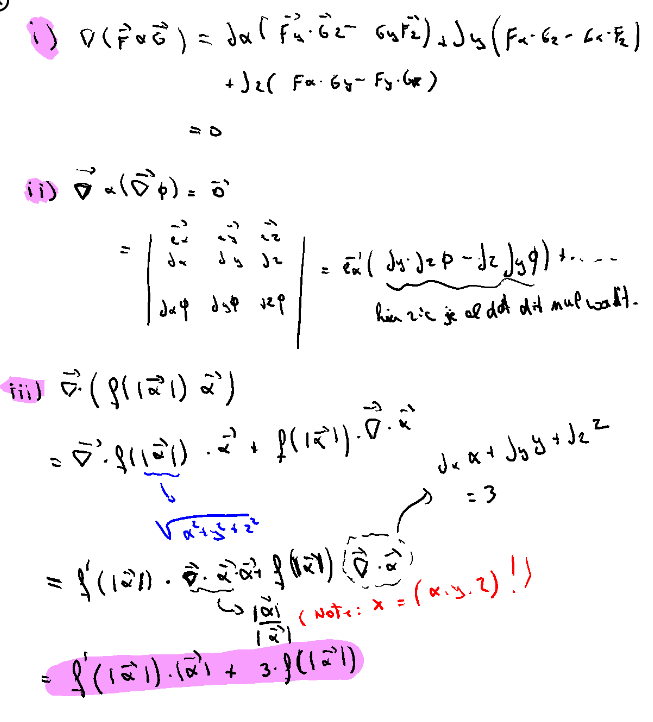 i) ∇(F⃗ x G⃗) = ∂x( F⃗y · G⃗z − GyF⃗z) + ∂y(Fx·Gz − Gx·Fz)
+ ∂z( Fx·Gy − Fy·Gx)
= 0
ii) ∇⃗ x (∇⃗ φ) = 0⃗
= | e⃗x e⃗y e⃗z |
| ∂x ∂y ∂z | = e⃗x( ∂y·∂zφ − ∂z∂yφ) + .....
| ∂xφ ∂yφ ∂zφ |
hier zie je al dat dit nul wordt.
iii) ∇⃗·( f(|x⃗|) x⃗ )
= ∇⃗·f(|x⃗|) · x⃗ + f(|x⃗|)·∇⃗·x⃗
∂x x + ∂y y + ∂z z
= 3
√x²+y²+z²
= f'(|x⃗|) · ∇⃗·x⃗·x⃗ + f(|x⃗|) (∇⃗·x⃗)
|x⃗|
|x⃗|
(Note: x = (x,y,z) !)
= f'(|x⃗|)·|x⃗| + 3·f(|x⃗|)